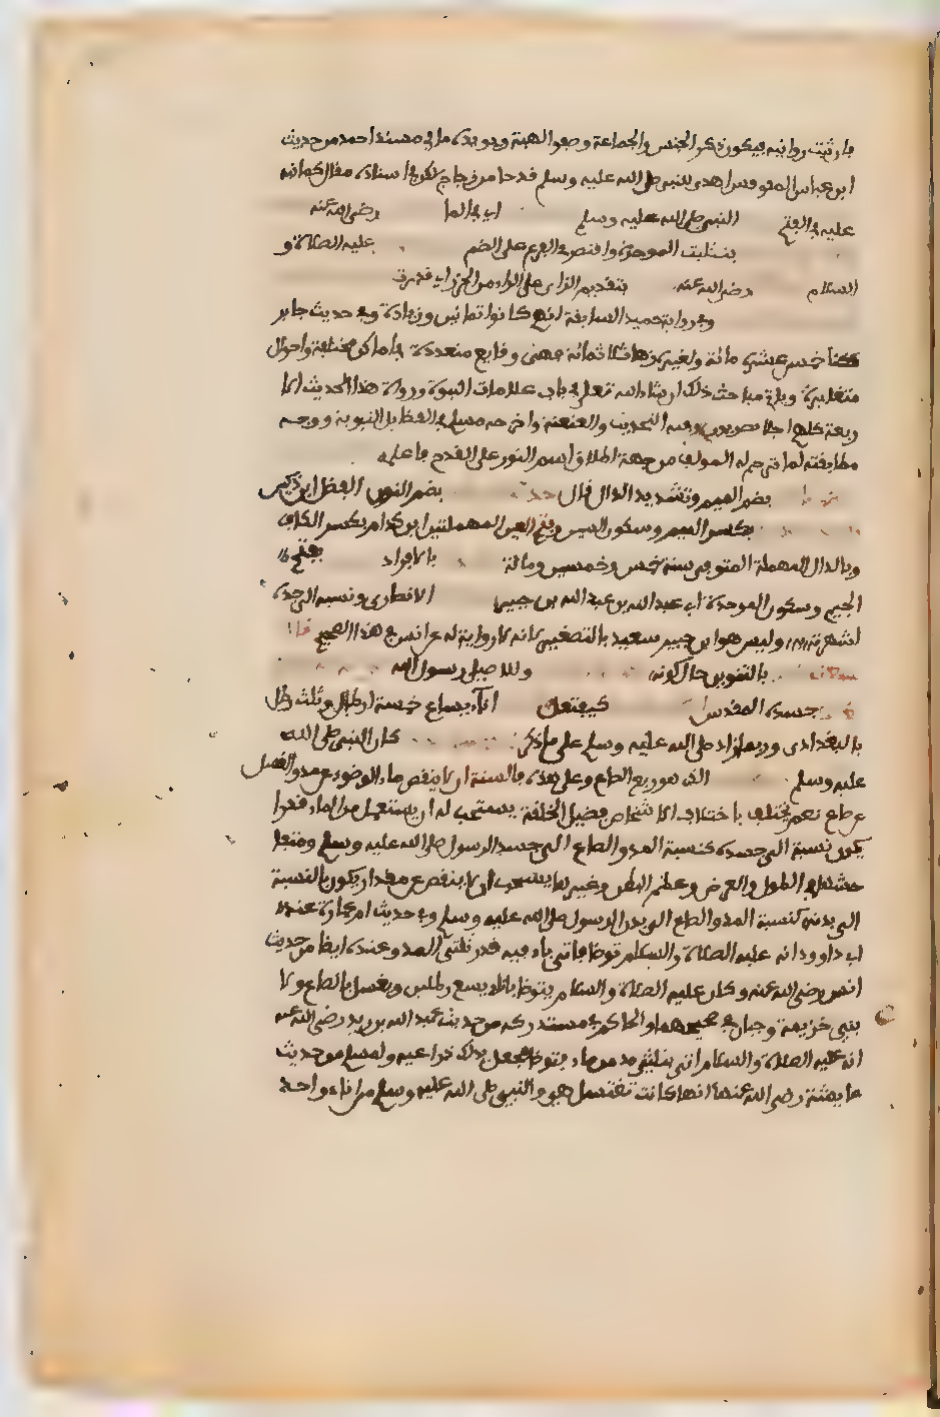 فإن ثبتت روايته فيكون ذكر الجنس والجماعة وصفوا الهيئة ويؤيده ما في مسند احمد من حديث
ابن عباس المقوقس اهدى للنبي صلى الله عليه وسلم قدحا من زجاج لكن في اسناده مقال كما نبه
عليه في الفتح النبي صلى الله عليه وسلم اي في الماء رضي الله عنه
بتثليث الموحدة واقتصر في الفرع على الضم عليه الصلاة و
السلام رضي الله عنه بتقديم الزاي على الراء من الحزر اي قدرت
وفي رواية حميد السابقة انهم كانوا ثمانين وزيادة وفي حديث جابر
كنا خمس عشرة مائة ولغيره زهاء ثلاثمائة فهي وقايع متعددة في اماكن مختلفة واحوال
متغايرة وياتي مباحث ذلك ان شاء الله تعلى في باب علامات النبوة ورواة هذا الحديث الا
ربعة كلهم اجلاء بصريون وفيه التحديث والعنعنة واخرجه مسلم في الفضايل النبوية ووجه
مطابقته لما ترجم له المولف من جهة اطلاق اسم التور على القدح فاعلمه
بضم الميم وتشديد الدال قال حدثنا بضم النون الفضل ابن دكين
بكسر الميم وسكون السين وفتح العين المهملتين ابن كدام بكسر الكاف
وبالدال المهملة المتوفى سنة خمس وخمسين ومائة بالافراد بفتح
الجيم وسكون الموحدة اي عبد الله بن عبد الله بن جبر الانصاري ونسبه الى جده
لشهرته به وليس هو ابن جبير سعيد بالتصغير لانه لا رواية له عن انس في هذا الصحيح قال
بالتنوين حال كونه ولللاصيلي رسول الله
جسده المقدس كيفتعل اناء يسع خمسة ارطال وثلث رطل
بالبغدادي وربما زاد صلى الله عليه وسلم على ما ذكر كان النبي صلى الله
عليه وسلم الذي هو ربع الصاع وعلى هذا فالسنة ان لا ينقص ماء الوضوء عن مد والغسل
عن صاع نعم يختلف باختلاف الاشخاص فضئيل الخلقة يستحب له ان يستعمل من الماء قدرا
يكون نسبته الى جسده كنسبة المد والصاع الى جسد الرسول صلى الله عليه وسلم ومتفا
حش في الطول والعرض وعظم البطن وغيرها يستحب ان لا ينقص عن مقدار يكون بالنسبة
الى بدنه كنسبة المد والصاع الى بدن الرسول صلى الله عليه وسلم وفي حديث ام عمارة عند
ابي داوود انه عليه الصلاة والسلام توضا فاتي باناء فيه قدر ثلثي المد وعنده ايضا من حديث
انس رضي الله عنه وكان عليه الصلاة والسلام يتوضا باناء يسع رطلين ويغتسل بالصاع ولا
بني خزيمة وحبان في صحيحهما والحاكم في مستدركه من حديث عبد الله بن زيد رضي الله عنه
انه عليه الصلاة والسلام اتي بثلثي مد من ماء فتوضا فجعل يدلك ذراعيه ولمسلم من حديث
عايشة رضي الله عنها انها كانت تغتسل هي والنبي صلى الله عليه وسلم من اناء واحد